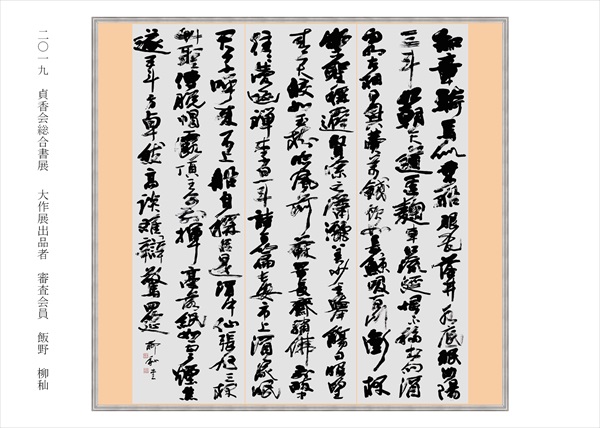 知章騎馬似乘船眼花落井水底眠汝陽
三斗始朝天道逢麹車口流涎恨不移封向酒
泉左相日興費萬錢飲如長鯨吸百川銜杯
樂聖稱避賢宗之瀟灑美少年擧觴白眼望
青天皎如玉樹臨風前蘇晋長齋繡佛前醉中
往往愛逃禪李白一斗詩百篇長安市上酒家眠
天子呼來不上船自稱臣是酒中仙張旭三杯
草聖傳脱帽露頂王公前揮毫落紙如雲煙焦
遂五斗方卓然高談雄辯驚四筵 柳秞書
二〇一九 貞香会総合書展 大作展出品者 審査会員 飯野 柳秞